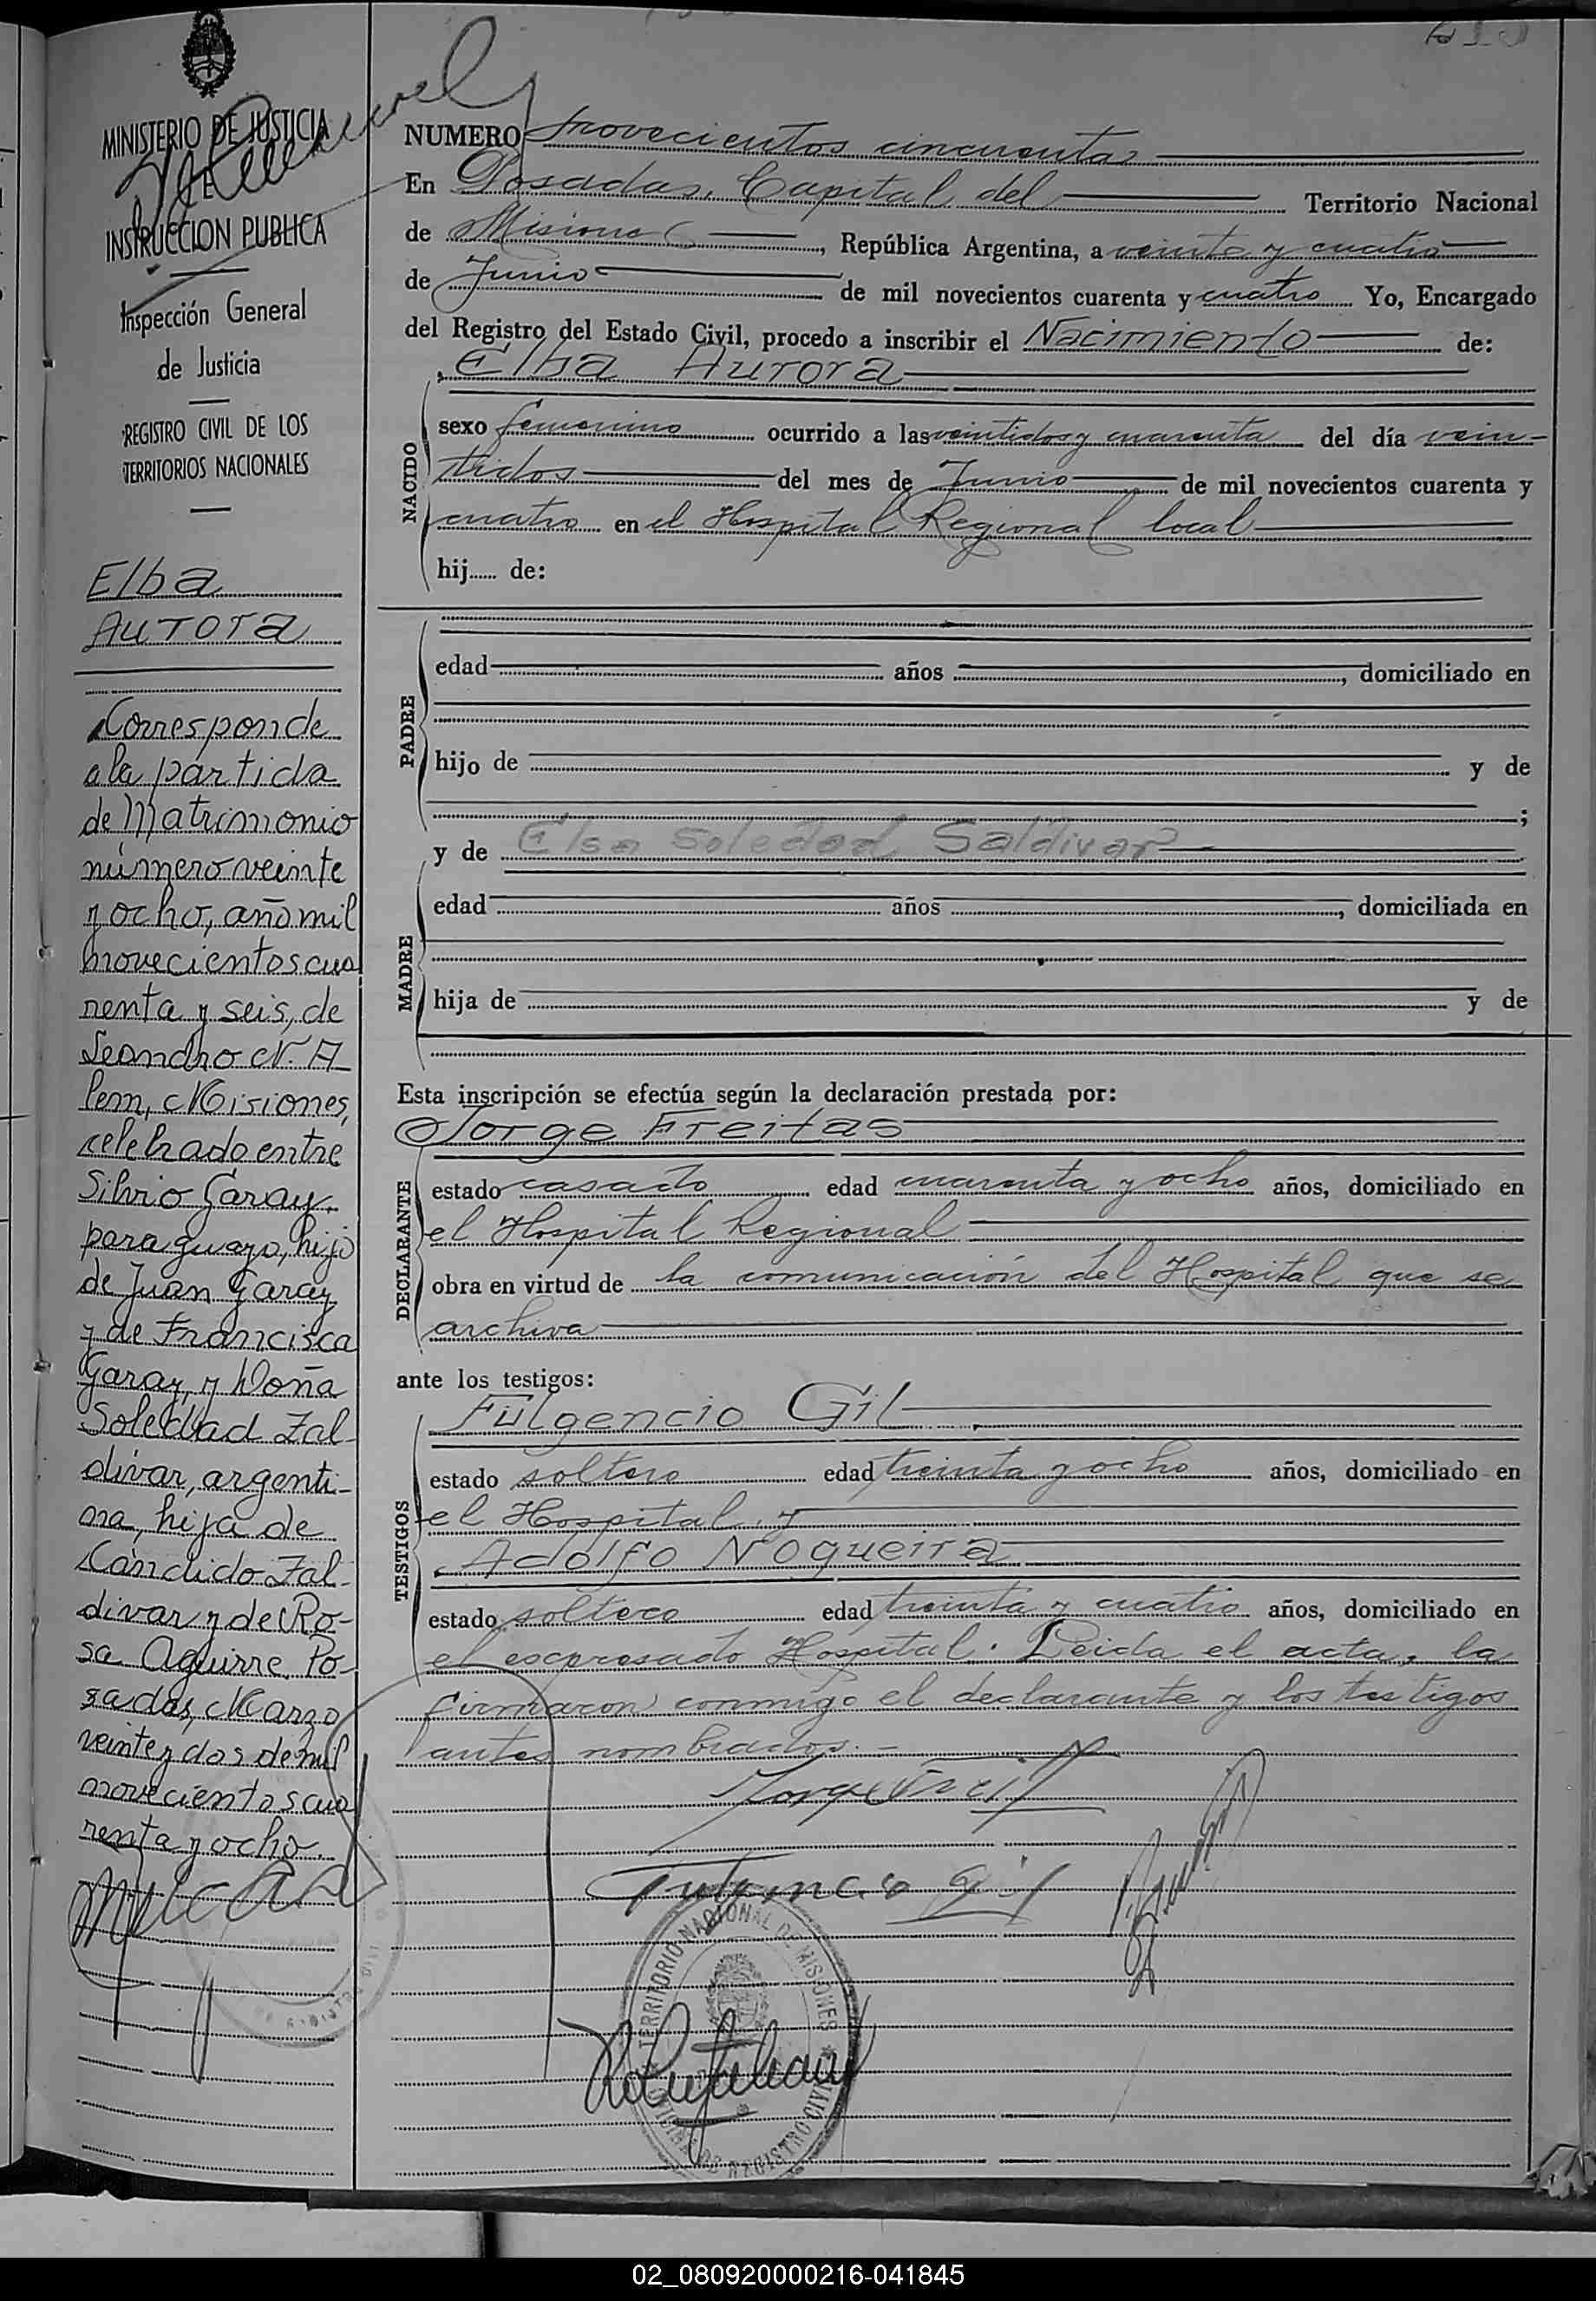 MINISTERIO DE JUSTICIA
E
INSTRUCCION PUBLICA
Inspección General
de Justicia
REGISTRO CIVIL DE LOS
TERRITORIOS NACIONALES
Elba
Aurora
Corresponde
a la partida
de Matrimonio
número veinte
y ocho, año mil
novecientos cua
renta y seis, de
Leandro N. A
lem, Misiones,
celebrado entre
Silvio Garay,
paraguayo, hijo
de Juan Garay
y de Francisca
Garay, y Doña
Soledad Zal-
divar, argenti-
na, hija de
Cándido Zal-
divar y de Ro-
sa Aguirre. Po-
sadas, Marzo
veinte y dos de mil
novecientos cua
renta y ocho.
NUMERO novecientos cincuenta
En Posadas, Capital del Territorio Nacional
de Misiones, República Argentina, a veinte y cuatro
de Junio de mil novecientos cuarenta y cuatro Yo, Encargado
del Registro del Estado Civil, procedo a inscribir el Nacimiento de:
Elba Aurora
NACIDO
sexo femenino ocurrido a las veintidos y cuarenta del día vein-
tidos del mes de Junio de mil novecientos cuarenta y
cuatro en el Hospital Regional local
hij...... de:
PADRE
edad años , domiciliado en
hijo de y de
;
y de Elsa Soledad Saldivar
MADRE
edad años , domiciliada en
hija de y de
Esta inscripción se efectúa según la declaración prestada por:
Jorge Freitas
DECLARANTE
estado casado edad cuarenta y ocho años, domiciliado en
el Hospital Regional
obra en virtud de la comunicación del Hospital que se
archiva
ante los testigos:
Fulgencio Gil
TESTIGOS
estado soltero edad treinta y ocho años, domiciliado en
el Hospital, y
Adolfo Nogueira
estado soltero edad treinta y cuatro años, domiciliado en
el escpresado Hospital. Leida el acta, la
firmaron conmigo el declarante y los testigos
antes nombrados.-
Fulgencio Gil
TERRITORIO NACIONAL DE MISIONES
REGISTRO CIVIL
02_080920000216-041845